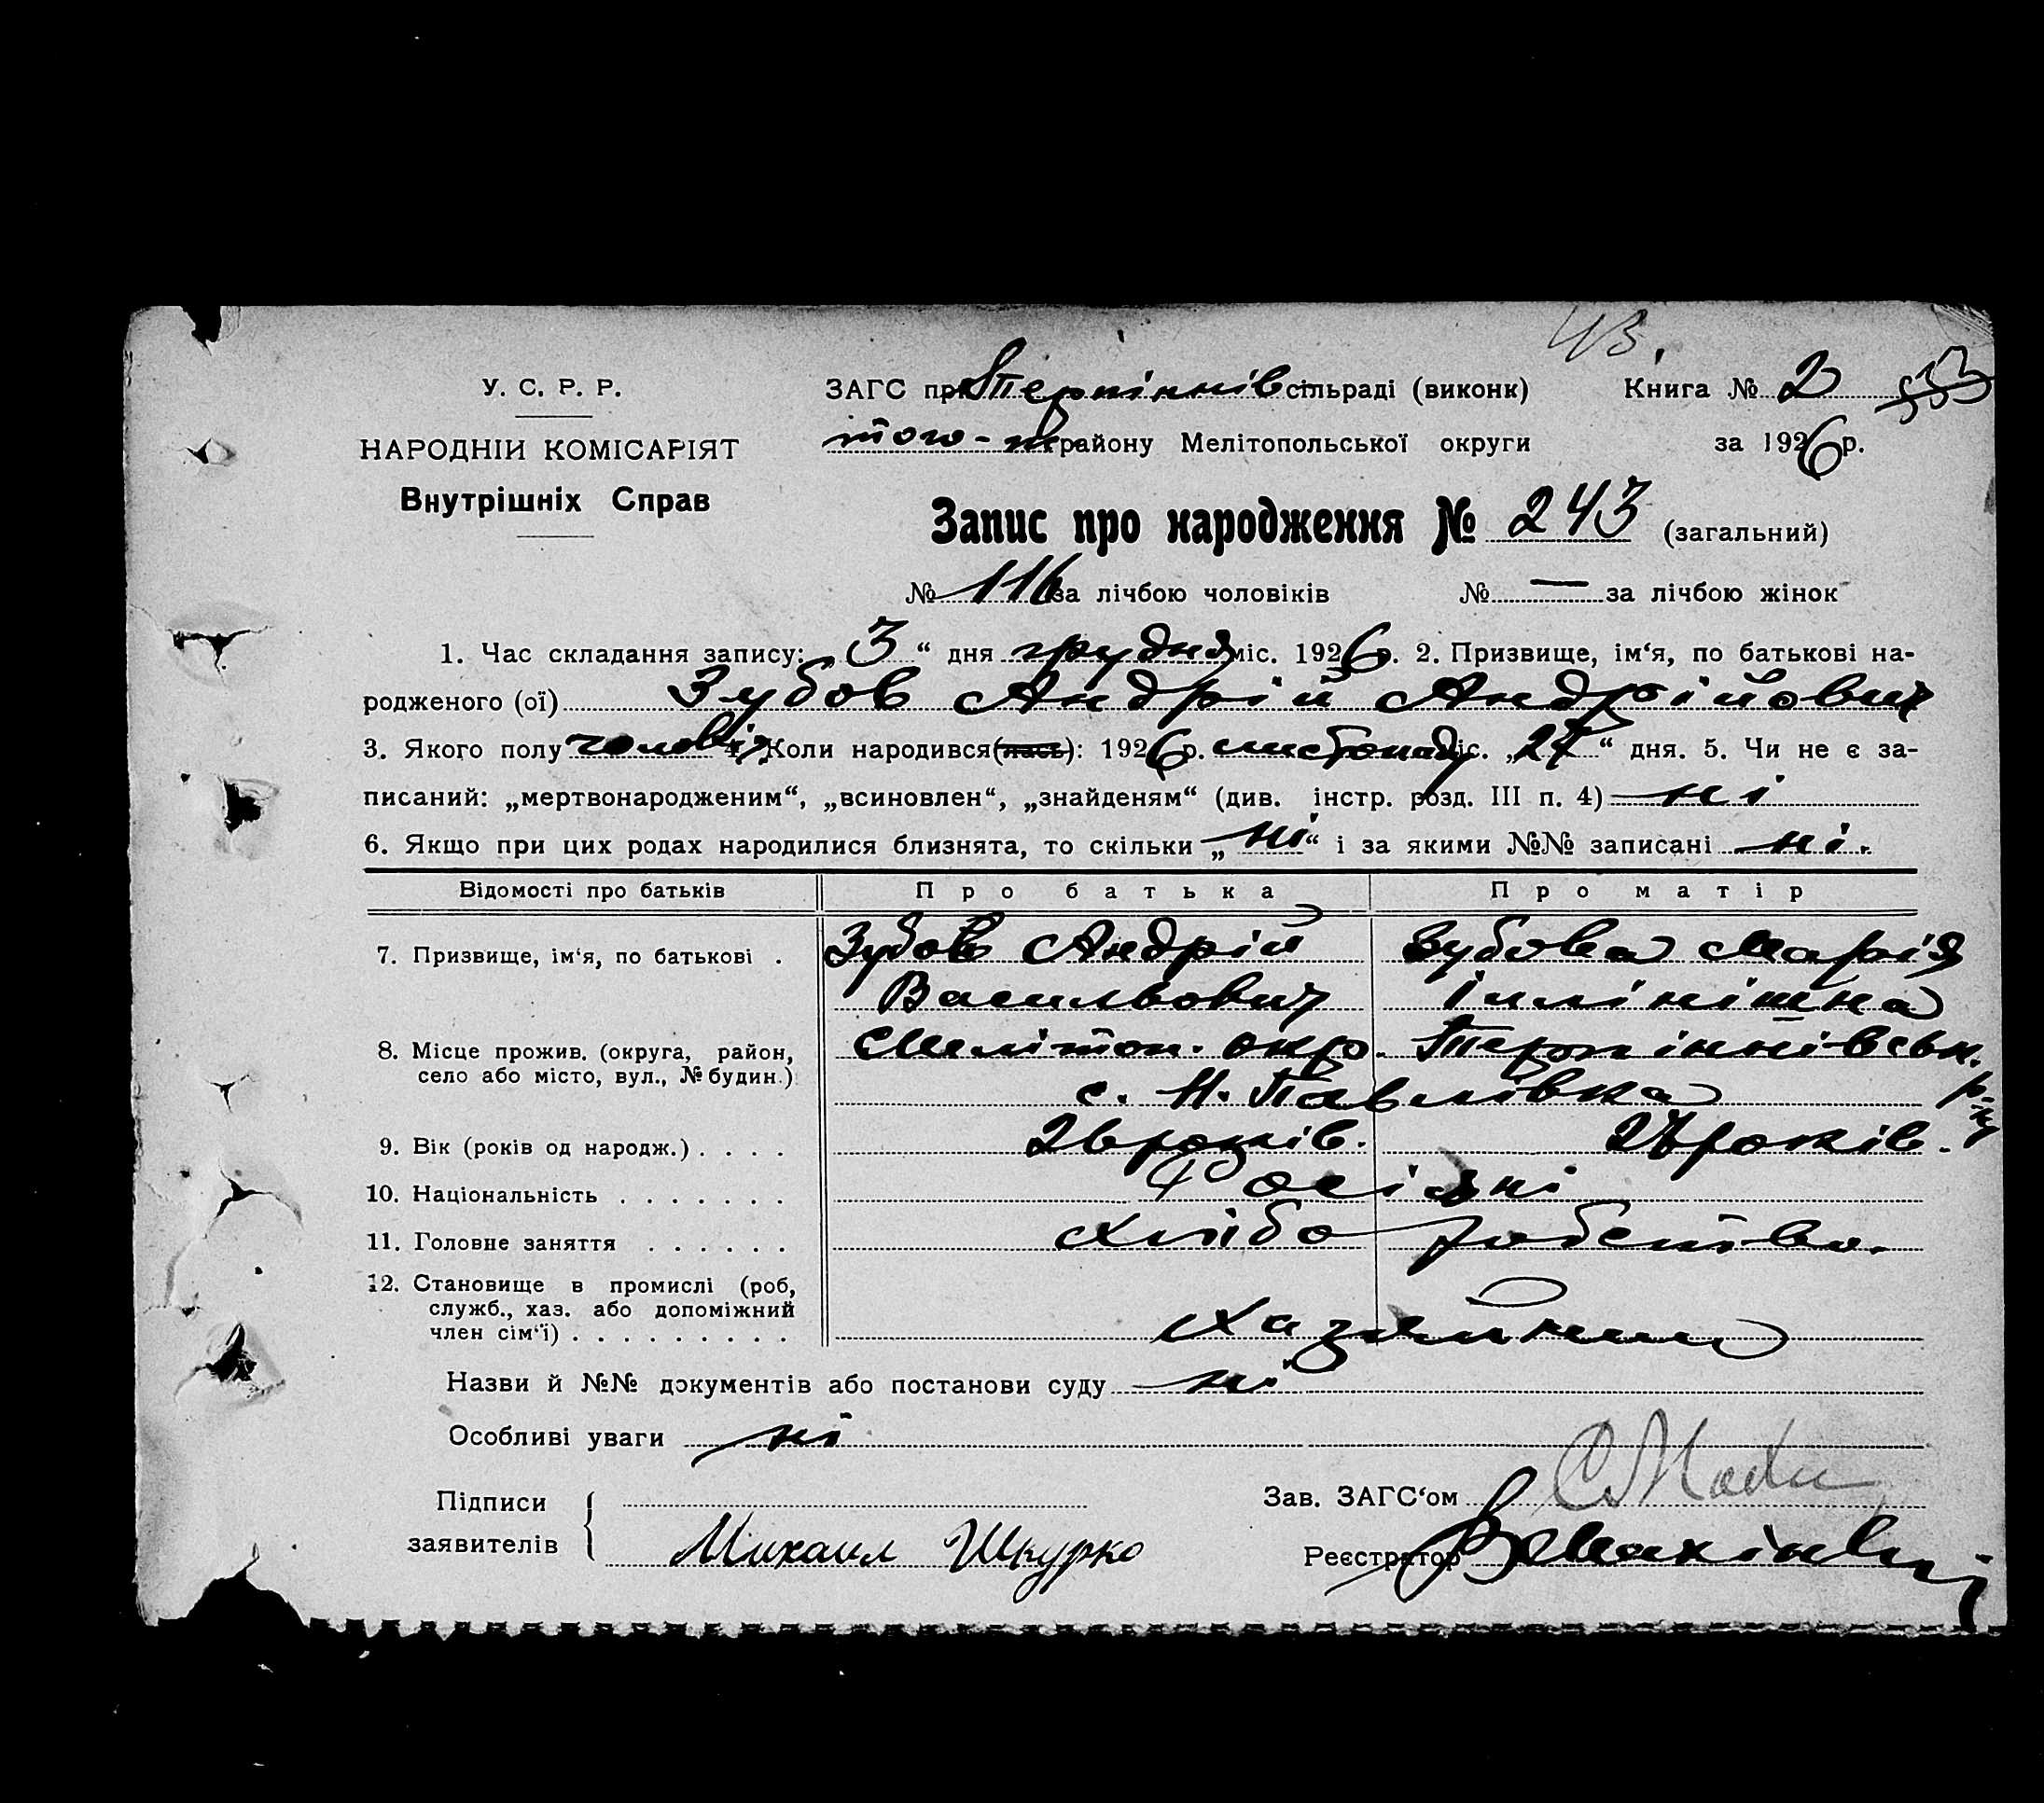 43.
У. С. Р. Р.
НАРОДНІЙ КОМІСАРІЯТ
Внутрішніх Справ
ЗАГС при Терпіннів сільраді (виконк)
того-ж району Мелітопольської округи
Книга № 2 533
за 1926 р.
Запис про народження № 243 (загальний)
№ 116 за лічбою чоловіків № — за лічбою жінок
1. Час складання запису: „3“ дня грудня міс. 1926 р. 2. Призвище, ім‘я, по батькові на-
родженого (ої) Зубов Андрій Андрійович
3. Якого полу чоловіч 4. Коли народився(лась): 1926 р. листопад міс. „27“ дня. 5. Чи не є за-
писаний: „мертвонародженим“, „всиновлен“, „знайденям“ (див. інстр. розд. III п. 4) ні
6. Якщо при цих родах народилися близнята, то скільки „ні“ і за якими №№ записані ні.
Відомості про батьків Про батька Про матір
7. Призвище, ім‘я, по батькові . Зубов Андрій Зубова Марія
Васильович Іллінішна
8. Місце прожив. (округа, район, Мелітоп. окр. Терпіннівськ.
село або місто, вул., № будин.) с. Н. Павлівка р-ну
9. Вік (років од народж.) . . . . 26 років. 27 років.
10. Національність . . . . . . . Росіяні
11. Головне заняття . . . . . . Хлібо робство.
12. Становище в промислі (роб,
служб., хаз. або допоміжний
член сім‘ї) . . . . . . . . .
Назви й №№ документів або постанови суду ні
Особливі уваги ні
Підписи
заявителів
Михаил Шкурко
Зав. ЗАГС‘ом
Реєстратор